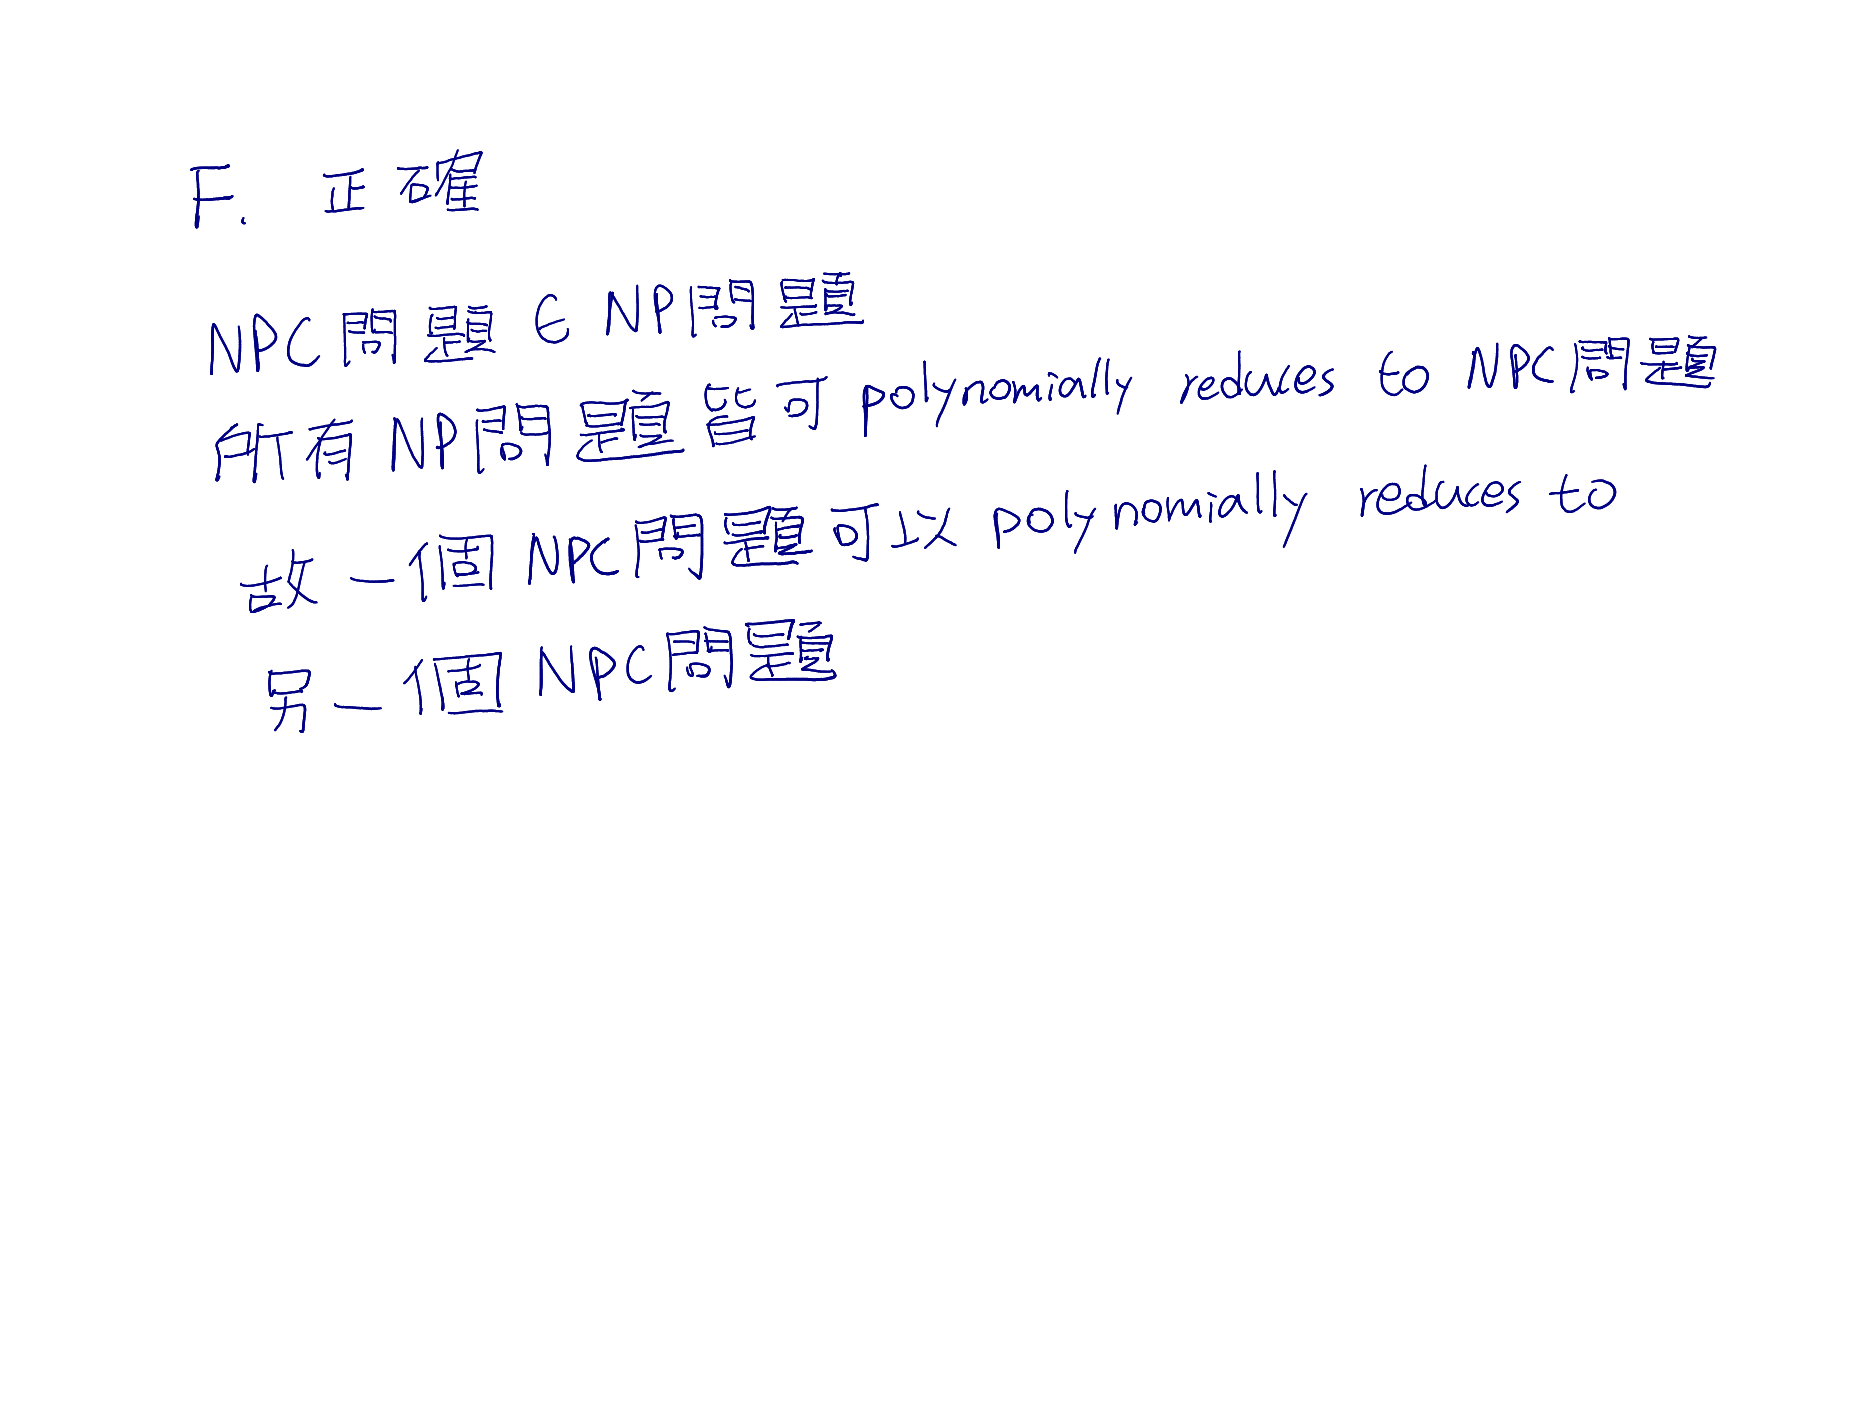 F. 正確
NPC問題 ∈ NP問題
所有NP問題皆可 polynomially reduces to NPC問題
故一個NPC問題可以 polynomially reduces to
另一個NPC問題